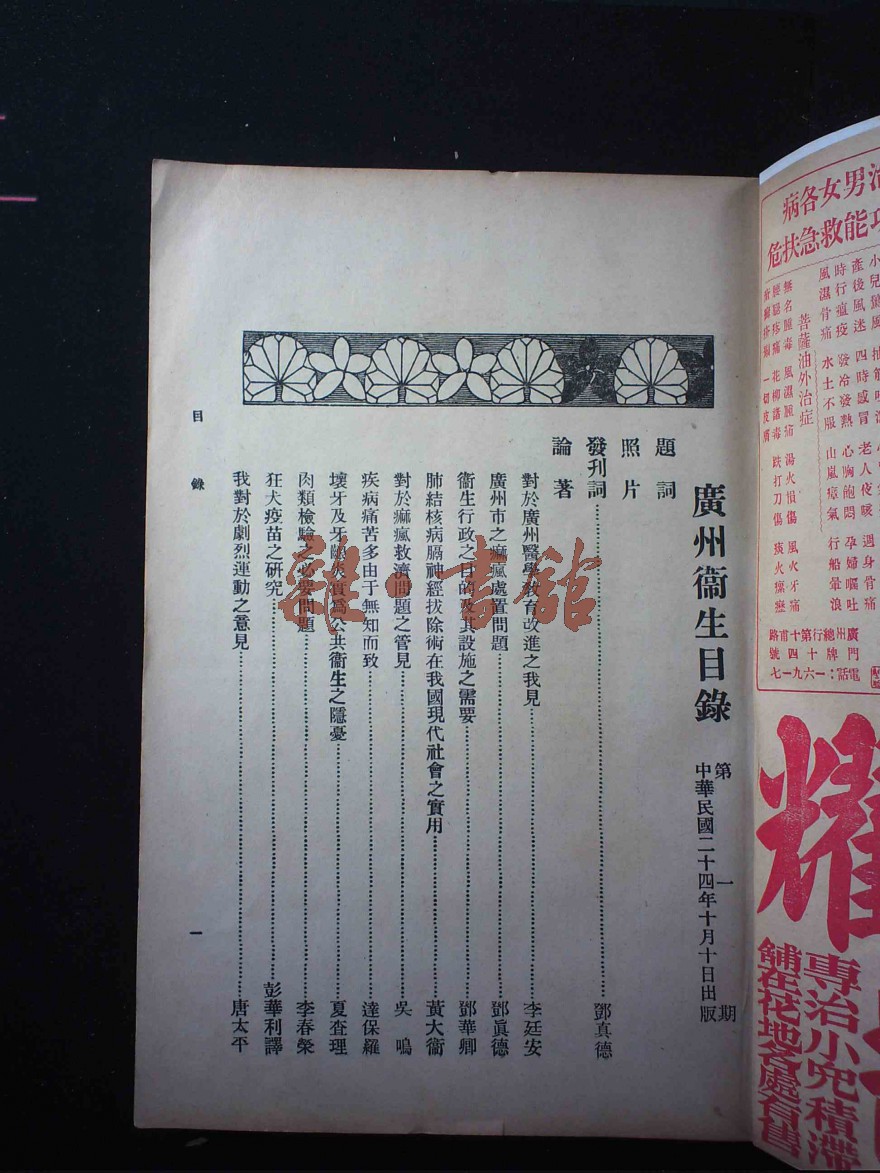 廣州衞生目錄
第一期
中華民國二十四年十月十日出版
題詞
照片
發刊詞……鄧真德
論著
對於廣州醫學教育改進之我見……李廷安
廣州市之痲瘋處置問題……鄧眞德
衞生行政之目的及其設施之需要……鄧華卿
肺結核病膈神經拔除術在我國現代社會之實用……黃大衞
對於痲瘋救濟問題之管見……吳鳴
疾病痛苦多由于無知而致……達保羅
壞牙及牙齦炎實爲公共衞生之隱憂……夏查理
肉類檢驗之必要問題……李春榮
狂犬疫苗之研究……彭華利譯
我對於劇烈運動之意見……唐太平
目錄
一
雜·書館
治男女各病
功能救急扶危
產後風迷
時行瘟疫
風濕骨痛
四時感冒
發冷發熱
水土不服
心胸飽悶
山嵐瘴氣
週身骨
孕婦嘔吐
行船暈浪
菩薩油外治症
無名腫毒
風濕腫痛
花柳諸毒
湯火損傷
跌打刀傷
風火牙痛
廣州總行第十甫路
門牌十四號
電話:一六九一七
專治小兒積滯
舖在花地各處有售